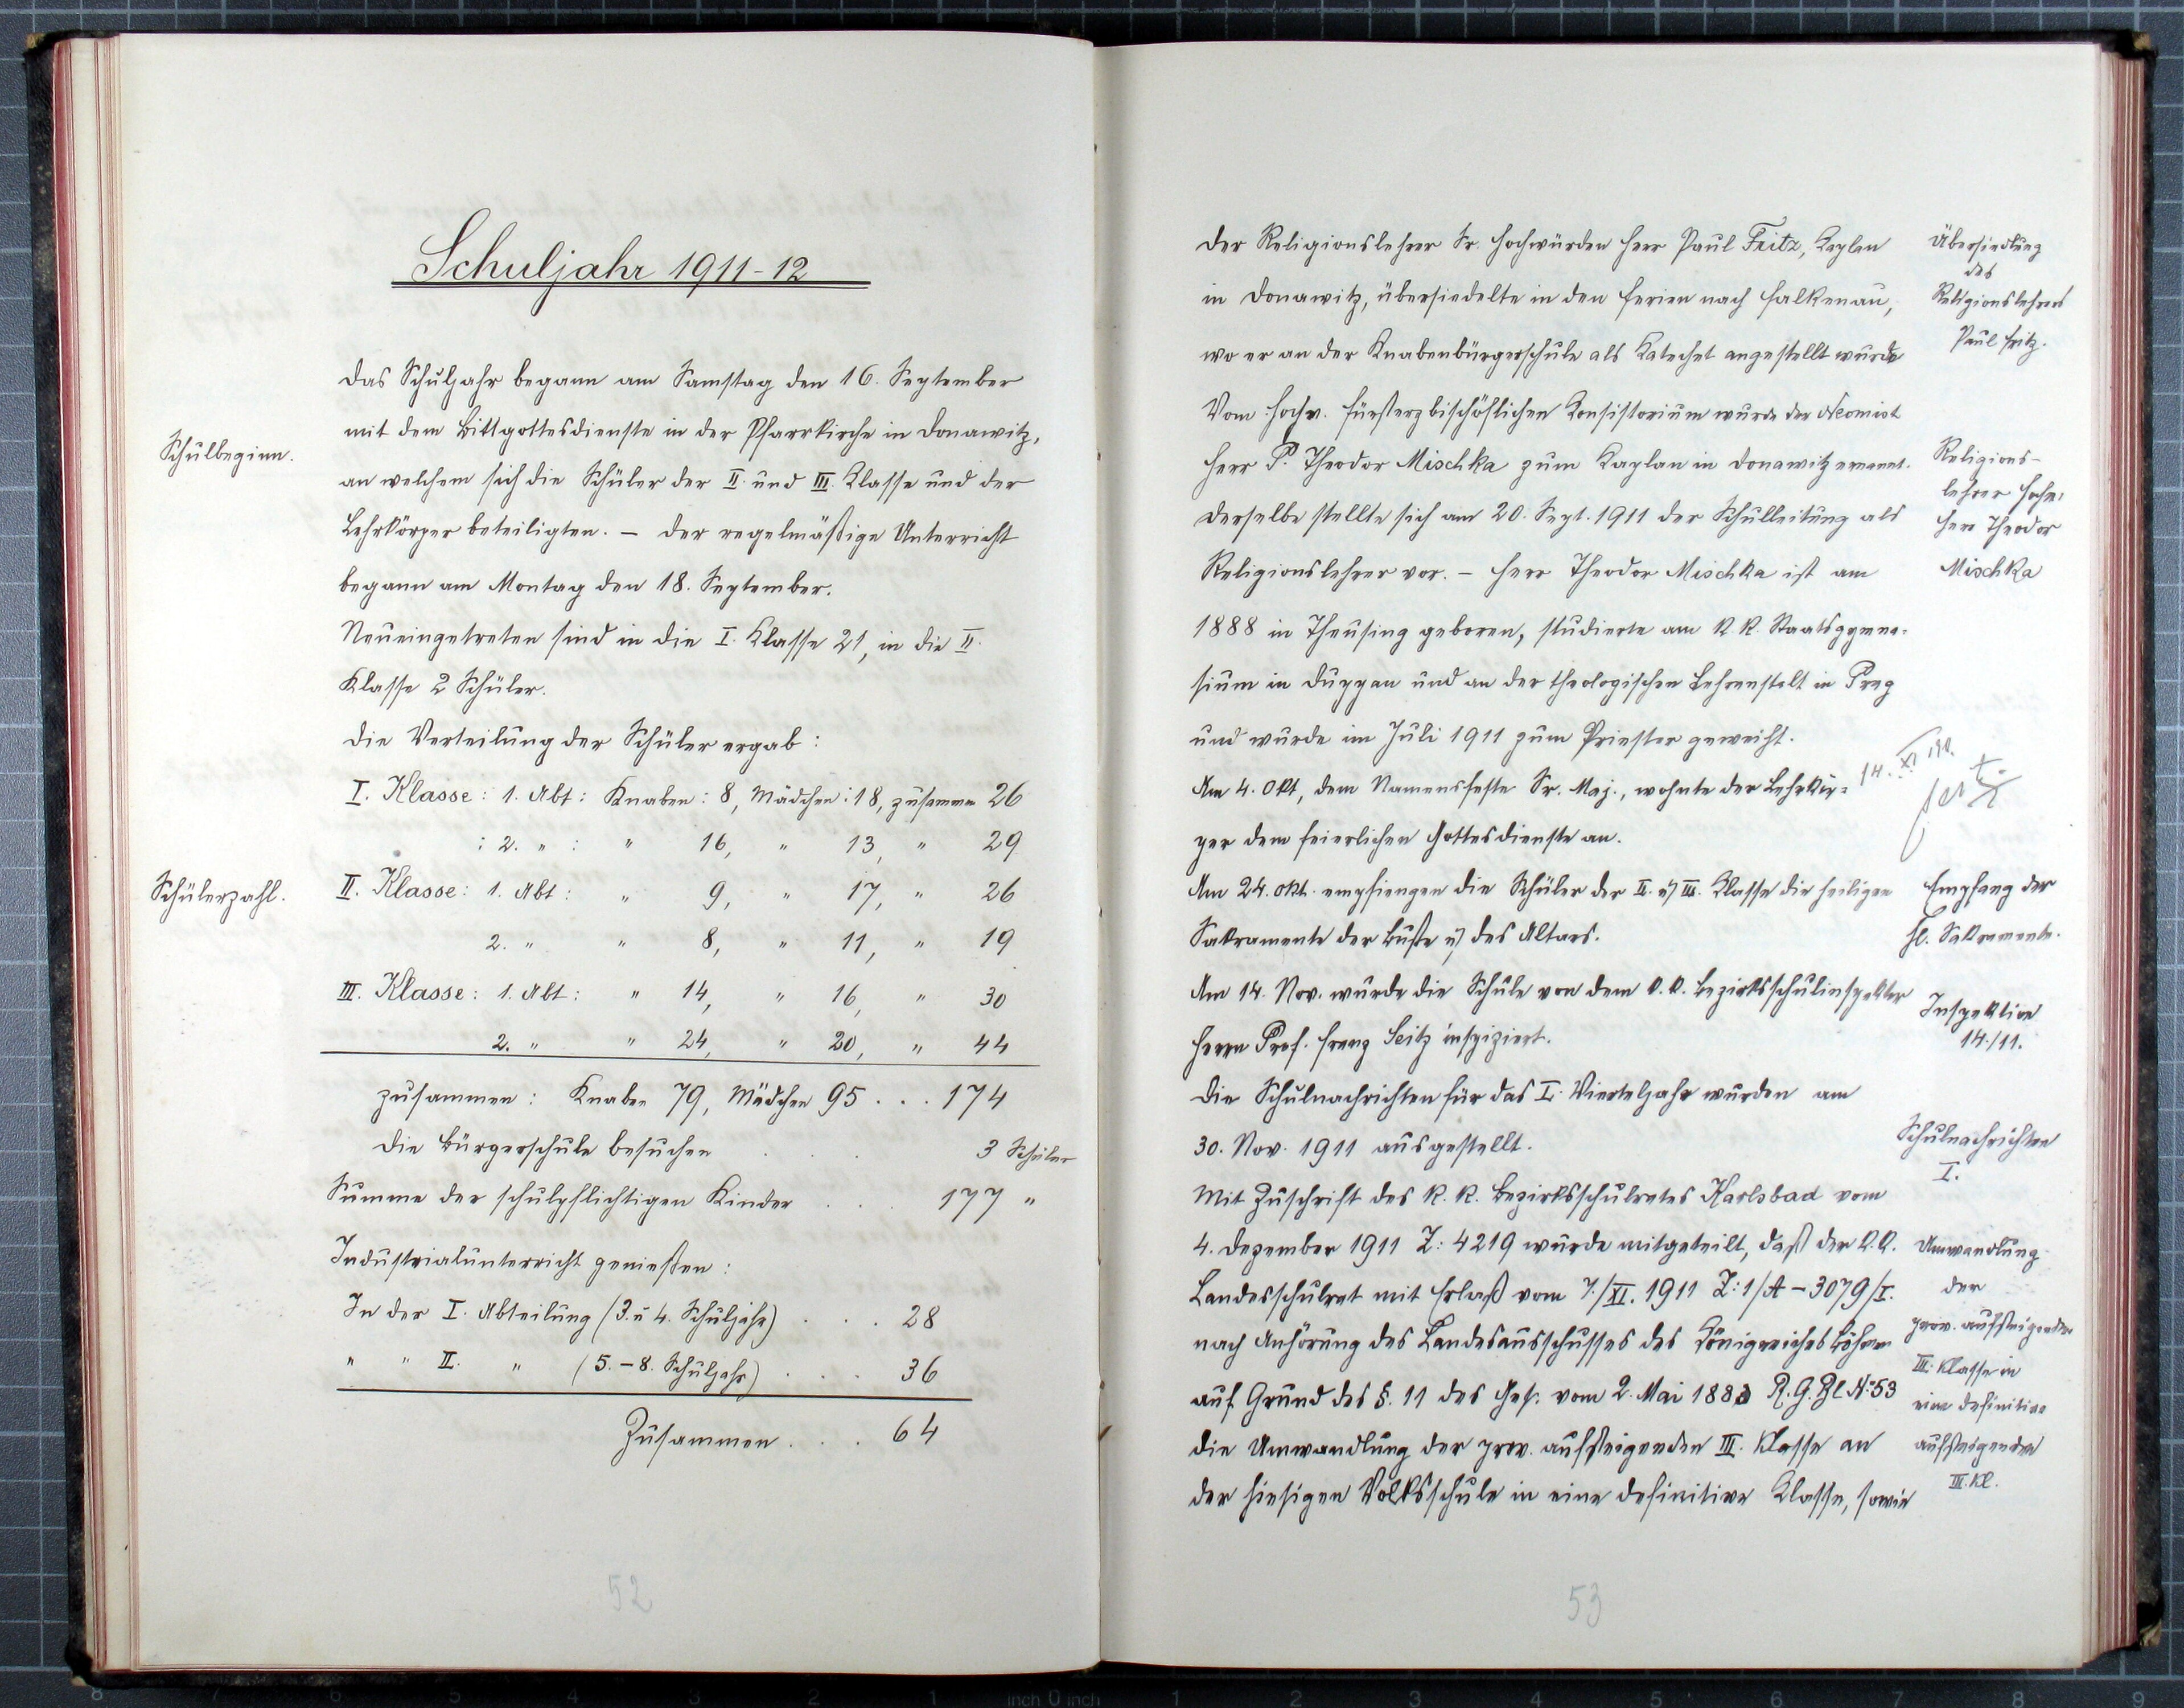 Schuljahr 1911-12
Das Schuljahr begann am Samstag den 16. September
mit dem Bittgottesdienste in der Pfarrkirche in Donawitz,
Schulbeginn.
an welchem sich die Schüler der II. und III. Klasse und der
Lehrkörper beteiligten. – Der regelmäßige Unterricht
begann am Montag den 18. September.
Neueingetreten sind in die I. Klasse 21, in die II.
Klasse 2 Schüler.
Die Verteilung der Schüler ergab:
I. Klasse: 1. Abt: Knaben: 8, Mädchen: 18, zusammen 26
: 2. " : " 16, " 13, " 29
Schülerzahl.
II. Klasse: 1. Abt: " 9, " 17, " 26
2. " " 8, " 11, " 19
III. Klasse: 1. Abt: " 14, " 16, " 30
2. " " 24, " 20, " 44
zusammen: Knaben 79, Mädchen 95 . . . 174
Die Bürgerschule besuchen . . . 3 Schüler
Summe der schulpflichtigen Kinder . . . 177 "
Industrialunterricht genießen:
In der I. Abteilung (3. u 4. Schuljahr) . . . 28
" " II. " (5.-8. Schuljahr) . . . 36
Zusammen . . . 64
52
Der Religionslehrer Sr. Hochwürden Herr Paul Fritz, Kaplan
in Donawitz, übersiedelte in den Ferien nach Falkenau,
wo er an der Knabenbürgerschule als Katechet angestellt wurde
Übersiedlung
des
Religionslehrers
Paul Fritz.
Vom hochw. fürsterzbischöflichen Konsistorium wurde der Neomist
Herr P. Theodor Mischka zum Kaplan in Donawitz ernannt.
Derselbe stellte sich am 20. Sept. 1911 der Schulleitung als
Religionslehrer vor. – Herr Theodor Mischka ist am
Religions-
lehrer Hochw.
Herr Theodor
Mischka
1888 in Theusing geboren, studierte am k. k. Staatsgymna-
sium in Duppau und an der theologischen Lehranstalt in Prag
und wurde im Juli 1911 zum Priester geweiht.
Am 4. Okt, dem Namensfeste Sr. Maj., wohnte der Lehrkör-
per dem feierlichen Gottesdienste an.
14. XI
Am 24. Okt. empfiengen die Schüler der II. u III. Klasse die heiligen
Sakramente der Buße u des Altars.
Empfang der
hl. Sakramente.
Am 14. Nov. wurde die Schule von dem k. k. Bezirksschulinspektor
Herrn Prof. Franz Seitz inspiziert.
Inspektion
14./11.
Die Schulnachrichten für das I. Vierteljahr wurden am
30. Nov. 1911 ausgestellt.
Schulnachrichten
I.
Mit Zuschrift des k. k. Bezirksschulrates Karlsbad vom
4. Dezember 1911 Z: 4219 wurde mitgeteilt, daß der k. k.
Landesschulrat mit Erlaß vom 7./XI. 1911 Z: 1/A – 3079/I.
nach Anhörung des Landesausschusses des Königreiches Böhmen
auf Grund des §. 11 des Ges. vom 2. Mai 1883 R. G. Bl. N: 53
die Umwandlung der prov. aufsteigenden III. Klasse an
der hiesigen Volksschule in eine definitive Klasse, sowie
Umwandlung
der
prov. aufsteigenden
III. Klasse in
eine definitive
aufsteigende
III. Kl.
53